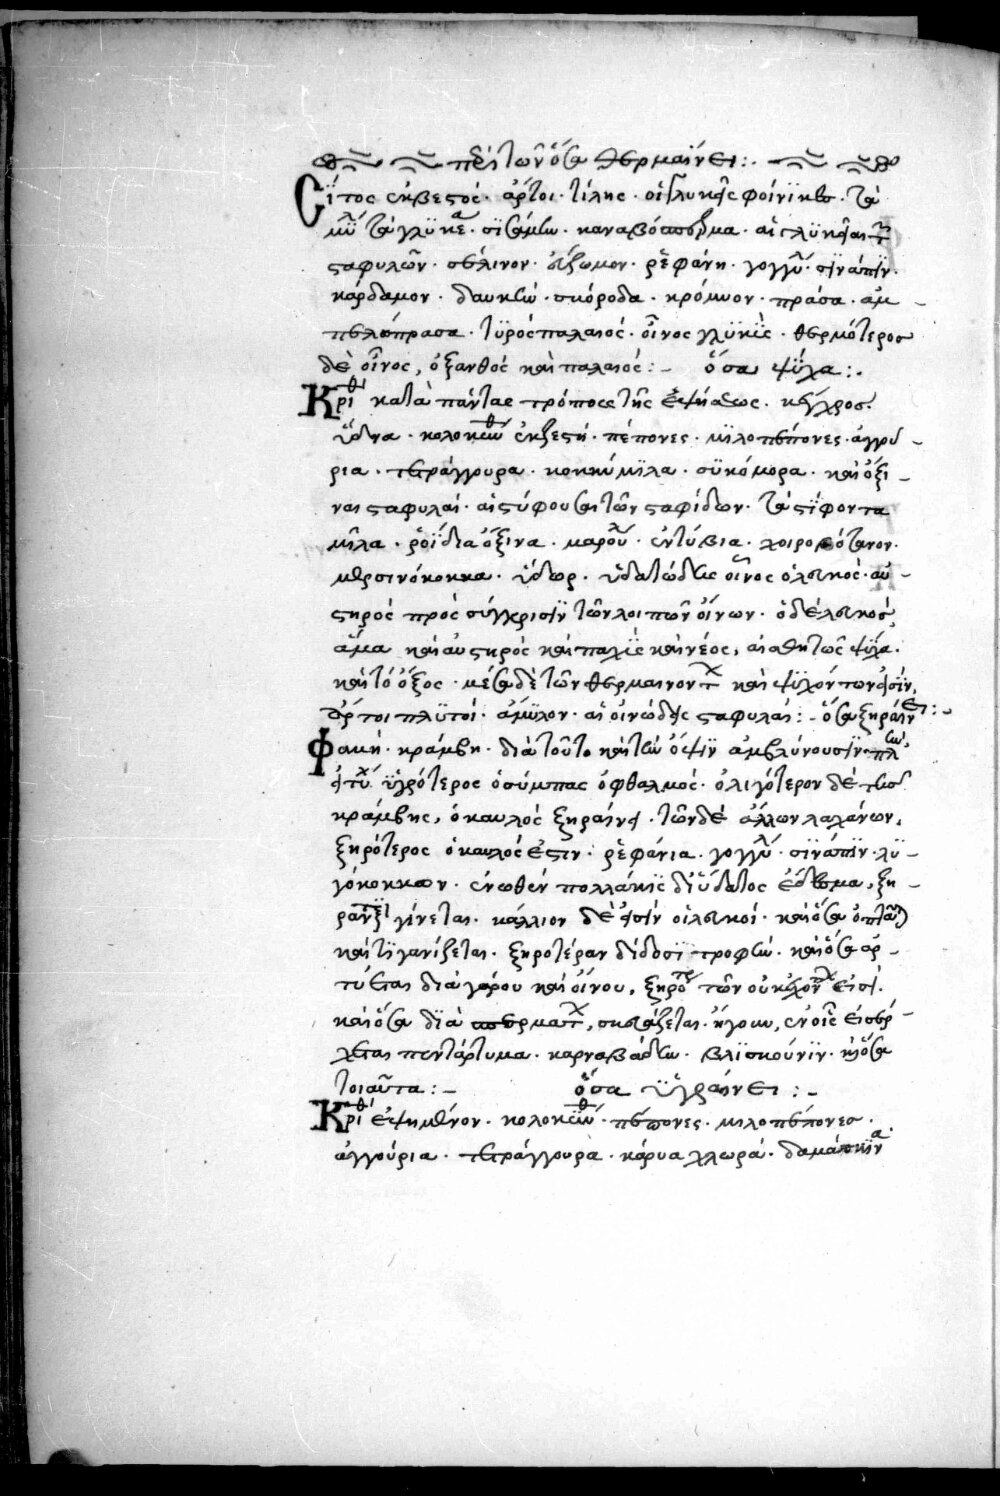 περὶ τῶν ὅσα θερμαίνει:
Σῖτος ἐκβεστός· ἄρτοι· τίλης· οἱ γλυκεῖς φοίνικες· τὰ
μῆλ τὰ γλυκέα· σισάμου· καναβόσπερμα· αἱ γλυκεῖαι τ
σταφυλῶν· σέλινον· εὔζωμον· ῥεφάνη· γογγυλ· σίναπιν·
κάρδαμον· δαυκίω· σκόροδα· κρόμυον· πράσα· ἀμ-
πελόπρασα· τυρὸς παλαιός· οἶνος γλυκὺς· θερμότερος
δὲ οἶνος, ὁ ξανθὸς καὶ παλαιός:- ὅσα ψύχει:-
Κριθὶ κατὰ πάντας τρόπους τῆς ἑψήσεως· κέγχρος·
ὕδνα· κολοκυνθ ἐκζεστή· πέπονες· μιλοπέπονες· ἀγγού-
ρια· τετράγγουρα· κοκκύμιλα· συκόμορα· καὶ ὄξι-
ναι σταφυλαί· αἱ στύφουσαι τῶν σταφίδων· τὰ στίφοντα
μῆλα· ῥοΐδια ὄξινα· μαρουλ· ἐντύβια· χοιροβότανον·
μερσινόκοκκα· ὕδωρ· ὑδατώδης οἶνος ὁ λευκὸς· αὐ-
στηρὸς πρὸς σύγκρισιν τῶν λοιπῶν οἴνων· ὁ δὲ λευκὸς,
ἅμα καὶ αὐστηρὸς καὶ παχὺς καὶ νέος, αἰσθητῶς ψύχει·
καὶ τὸ ὄξος· μέσα δὲ τῶν θερμαινοντ καὶ ψυχόντων εἰσίν,
ἄρτοι πλυτοί· ἄμυλον· αἱ οἰνώδεις σταφυλαί:- ὅσα ξηραίνει:-
Φακή· κράμβη· διὰ τοῦτο καὶ τὴν ὄψιν ἀμβλύνουσιν· πλὴν
εἰ τύχ ὑγρότερος ὁ σύμπας ὀφθαλμός· ὀλιγότερον δὲ τῆς
κράμβης, ὁ καυλὸς ξηραίνει· τῶν δὲ ἄλλων λαχάνων,
ξηρότερος ὁ καυλὸς ἐστιν· ῥεφάνια· γογγυλ· σίναπιν· λυ-
γόκοκκον· ἑνωθὲν πολλάκις δι' ὕδατος ἔδεσμα, ξη-
ραν γίνεται· κάλλιον δὲ εἰσὶν οἱ λευκοί· καὶ ὅσα ὀπτᾶ
καὶ τιγανίζεται· ξηροτέραν δίδοσι τροφὴν· καὶ ὅσα ἀρ-
τύεται διὰ γάρου καὶ οἴνου, ξηρότερ τῶν οὐκ ἐχόντ εἰσί·
καὶ ὅσα διὰ σπερματ, σκευάζεται· ἤγουν, ἐν οἷς εἰσέρ-
χεται πεντάρτυμα· καρναβάδιν· βλισκούνιν· κὶ ὅσα
τοιαῦτα:- ὅσα ὑγραίνει:-
Κριθὶ ἑψημένον· κολοκυνθ· πέπονες· μιλοπέπονες·
ἀγγούρια· τετράγγουρα· κάρυα χλωρά· δαμάσκινα